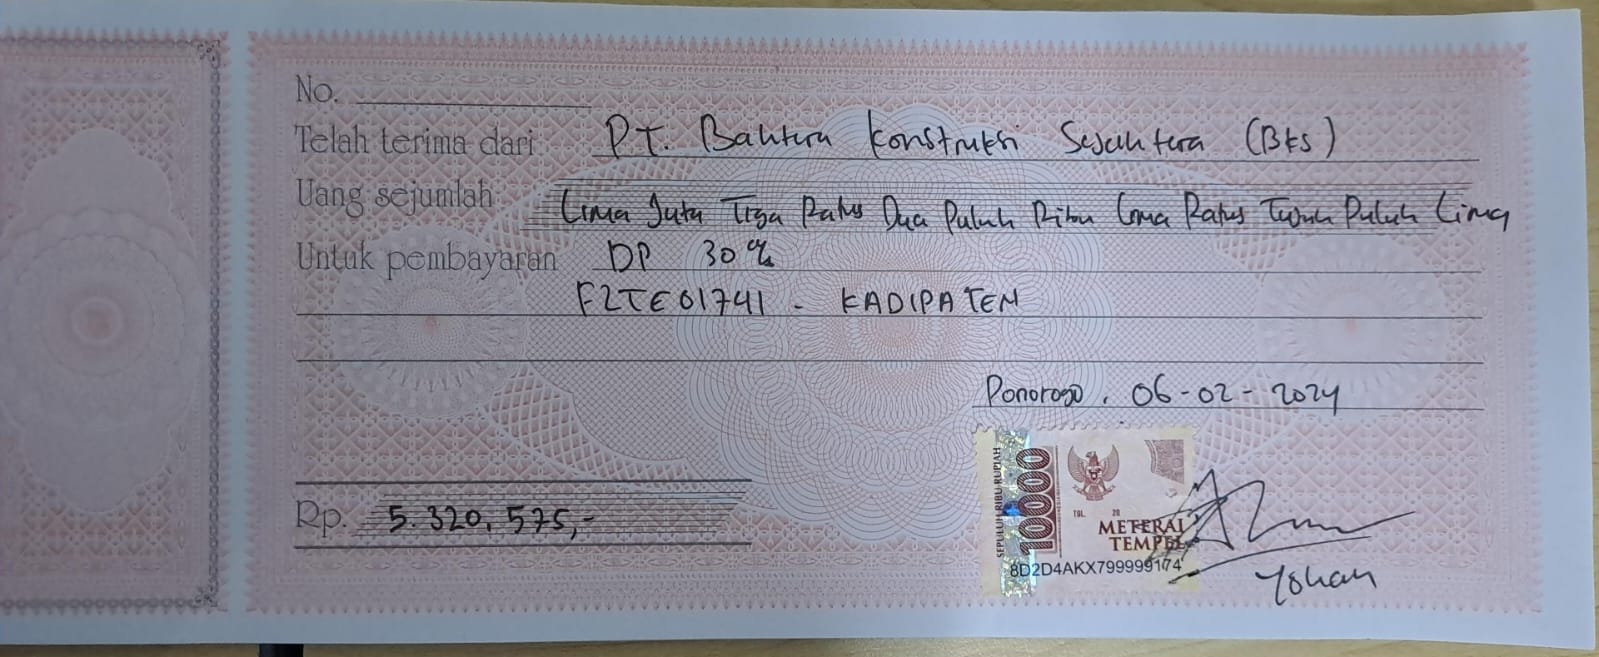 No.
Telah terima dari PT. Bahtera Konstruksi Sejahtera (BKS)
Uang sejumlah Lima Juta Tiga Ratus Dua Puluh Ribu Lima Ratus Tujuh Puluh Lima
Untuk pembayaran DP 30%
F2TE01741 - KADIPATEN
Ponorogo, 06-02-2024
Rp. 5.320,575,-
SEPULUH RIBU RUPIAH
10000
TGL. 20
METERAI
TEMPEL
8D2D4AKX799999174
Yohan